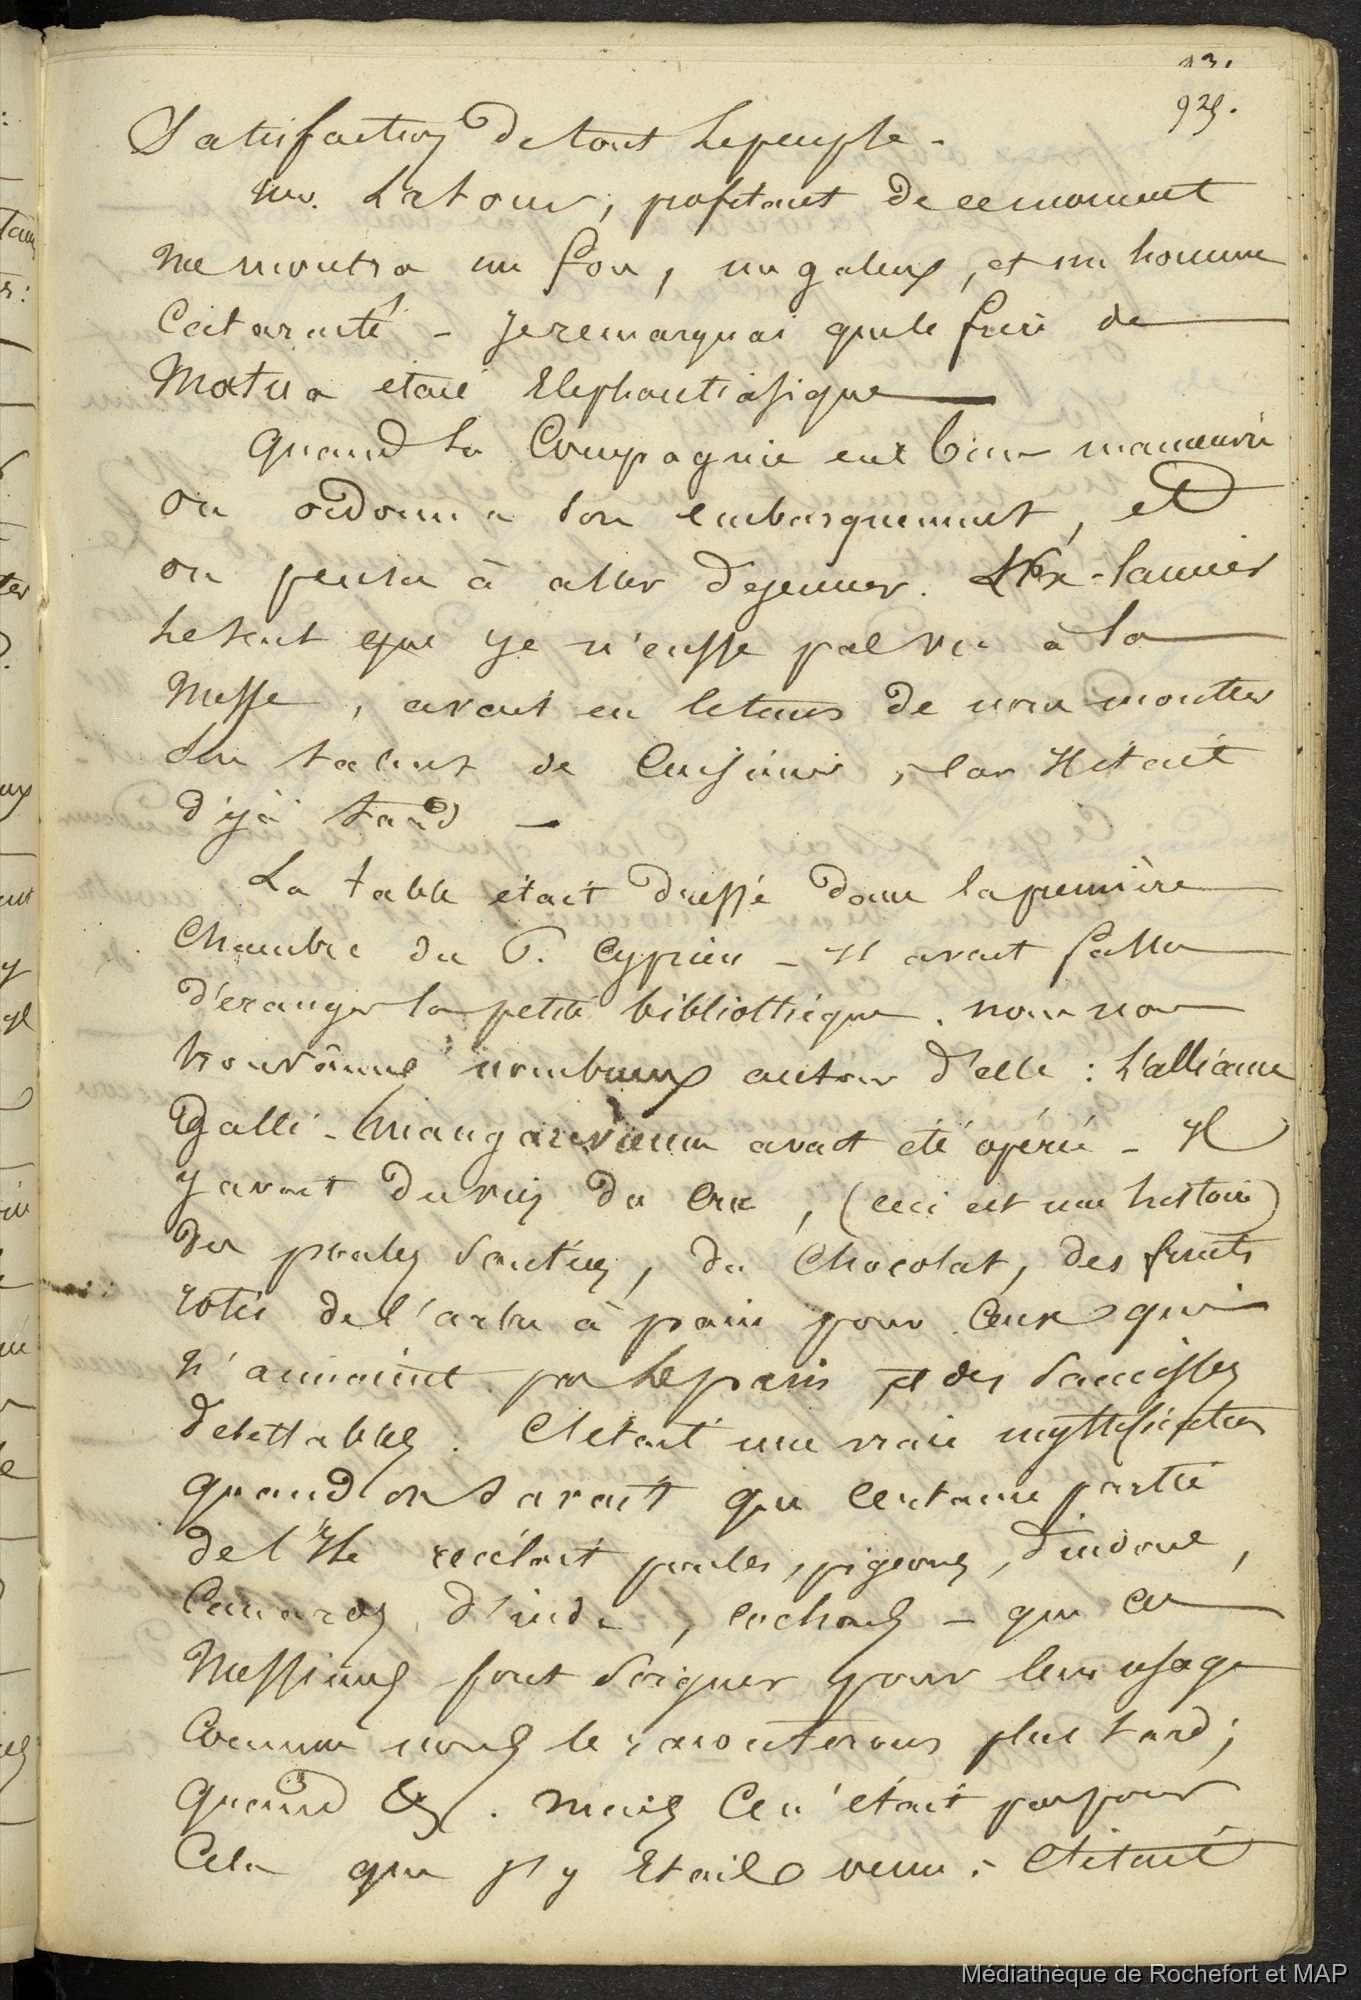 13.
925.
Satisfaction de tout le peuple.
Mr. Latour, profitant de ce moment
me montra un fou, un galeux, et un homme
Cataracté - Je remarquai que le frère de
Matua était Elephantiasique
Quand la Compagnie eut bien manœuvré
on ordonna son embarquement, et
on pensa à aller déjeuner. L'Ex-lancier
le seul que je n'eusse pas vu à la
Messe, avait eu le tems de nous montrer
son talent de Cuisinier, car Il était
déjà tard -
La table était dressé dans la première
Chambre du P. Cyprien - Il avait fallu
déranger la petite bibliothèque. nous nous
trouvâmes nombreux autour d'elle : L'alliance
Galli-Mangarévienne avait été opérée - Il
y avait du vin du cru, (ceci est une histoire)
des poules sautées, du Chocolat, des fruits
rotis de l'arbre à pain pour Ceux qui
n'aimaient pas le pain et des saucisses
détestables. C'était une vraie mystification
quand on savait que certaine partie
de l'Ile recélait poules, pigeons, dindons,
Canards d'inde, cochons - que ces
Messieurs font soigner pour leur usage
Comme nous le raconterons plus tard;
Quand &. Mais Ce n'était pas pour
Cela que j'y étais venu : C'était
Médiathèque de Rochefort et MAP